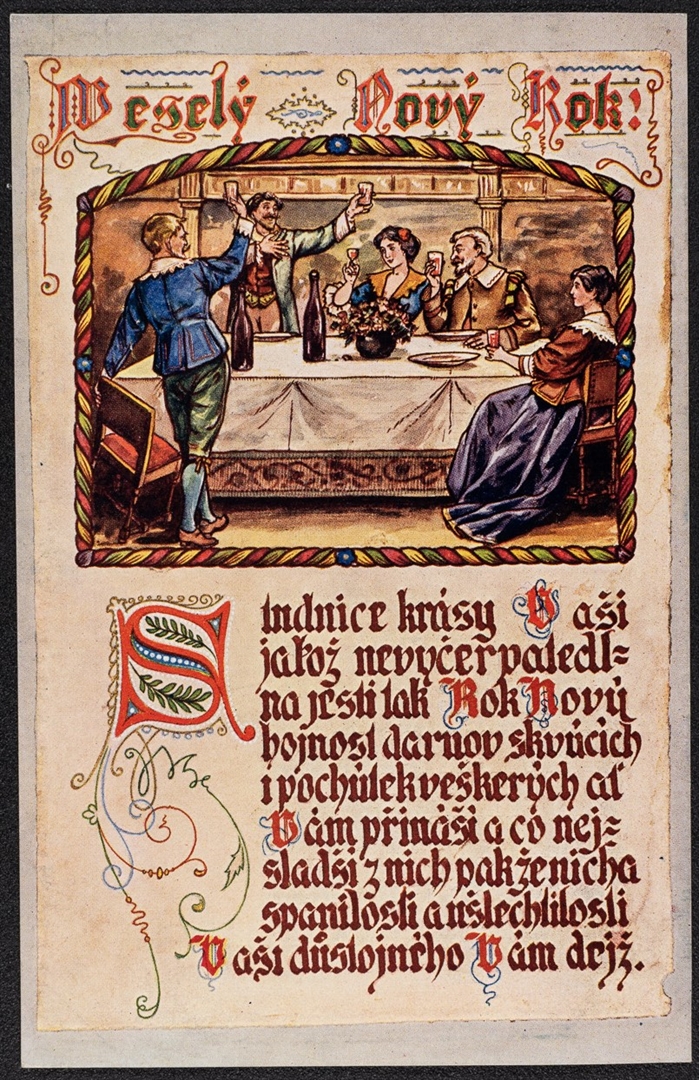 Veselý Nový Rok!
Studnice krásy Vaši
jakož nevyčerpatedl=
na jesti tak Rok Nový
hojnost daruov skvúcích
i pochúlek veškerých ať
Vám přináši a co nej=
sladší z nich pak ženicha
spanilosti a ušlechtilosti
Vaši důstojného Vám dejž.